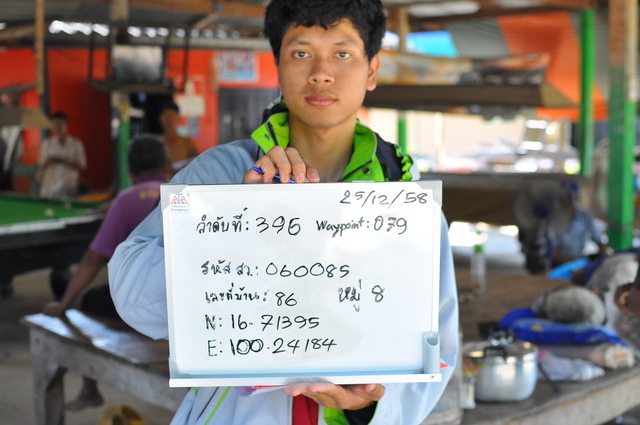 25/12/58
ลำดับที่: 396 Waypoint: 079
รหัส สว.: 060085
เลขที่บ้าน: 86 หมู่ 8
N: 16.71395
E: 100.24184